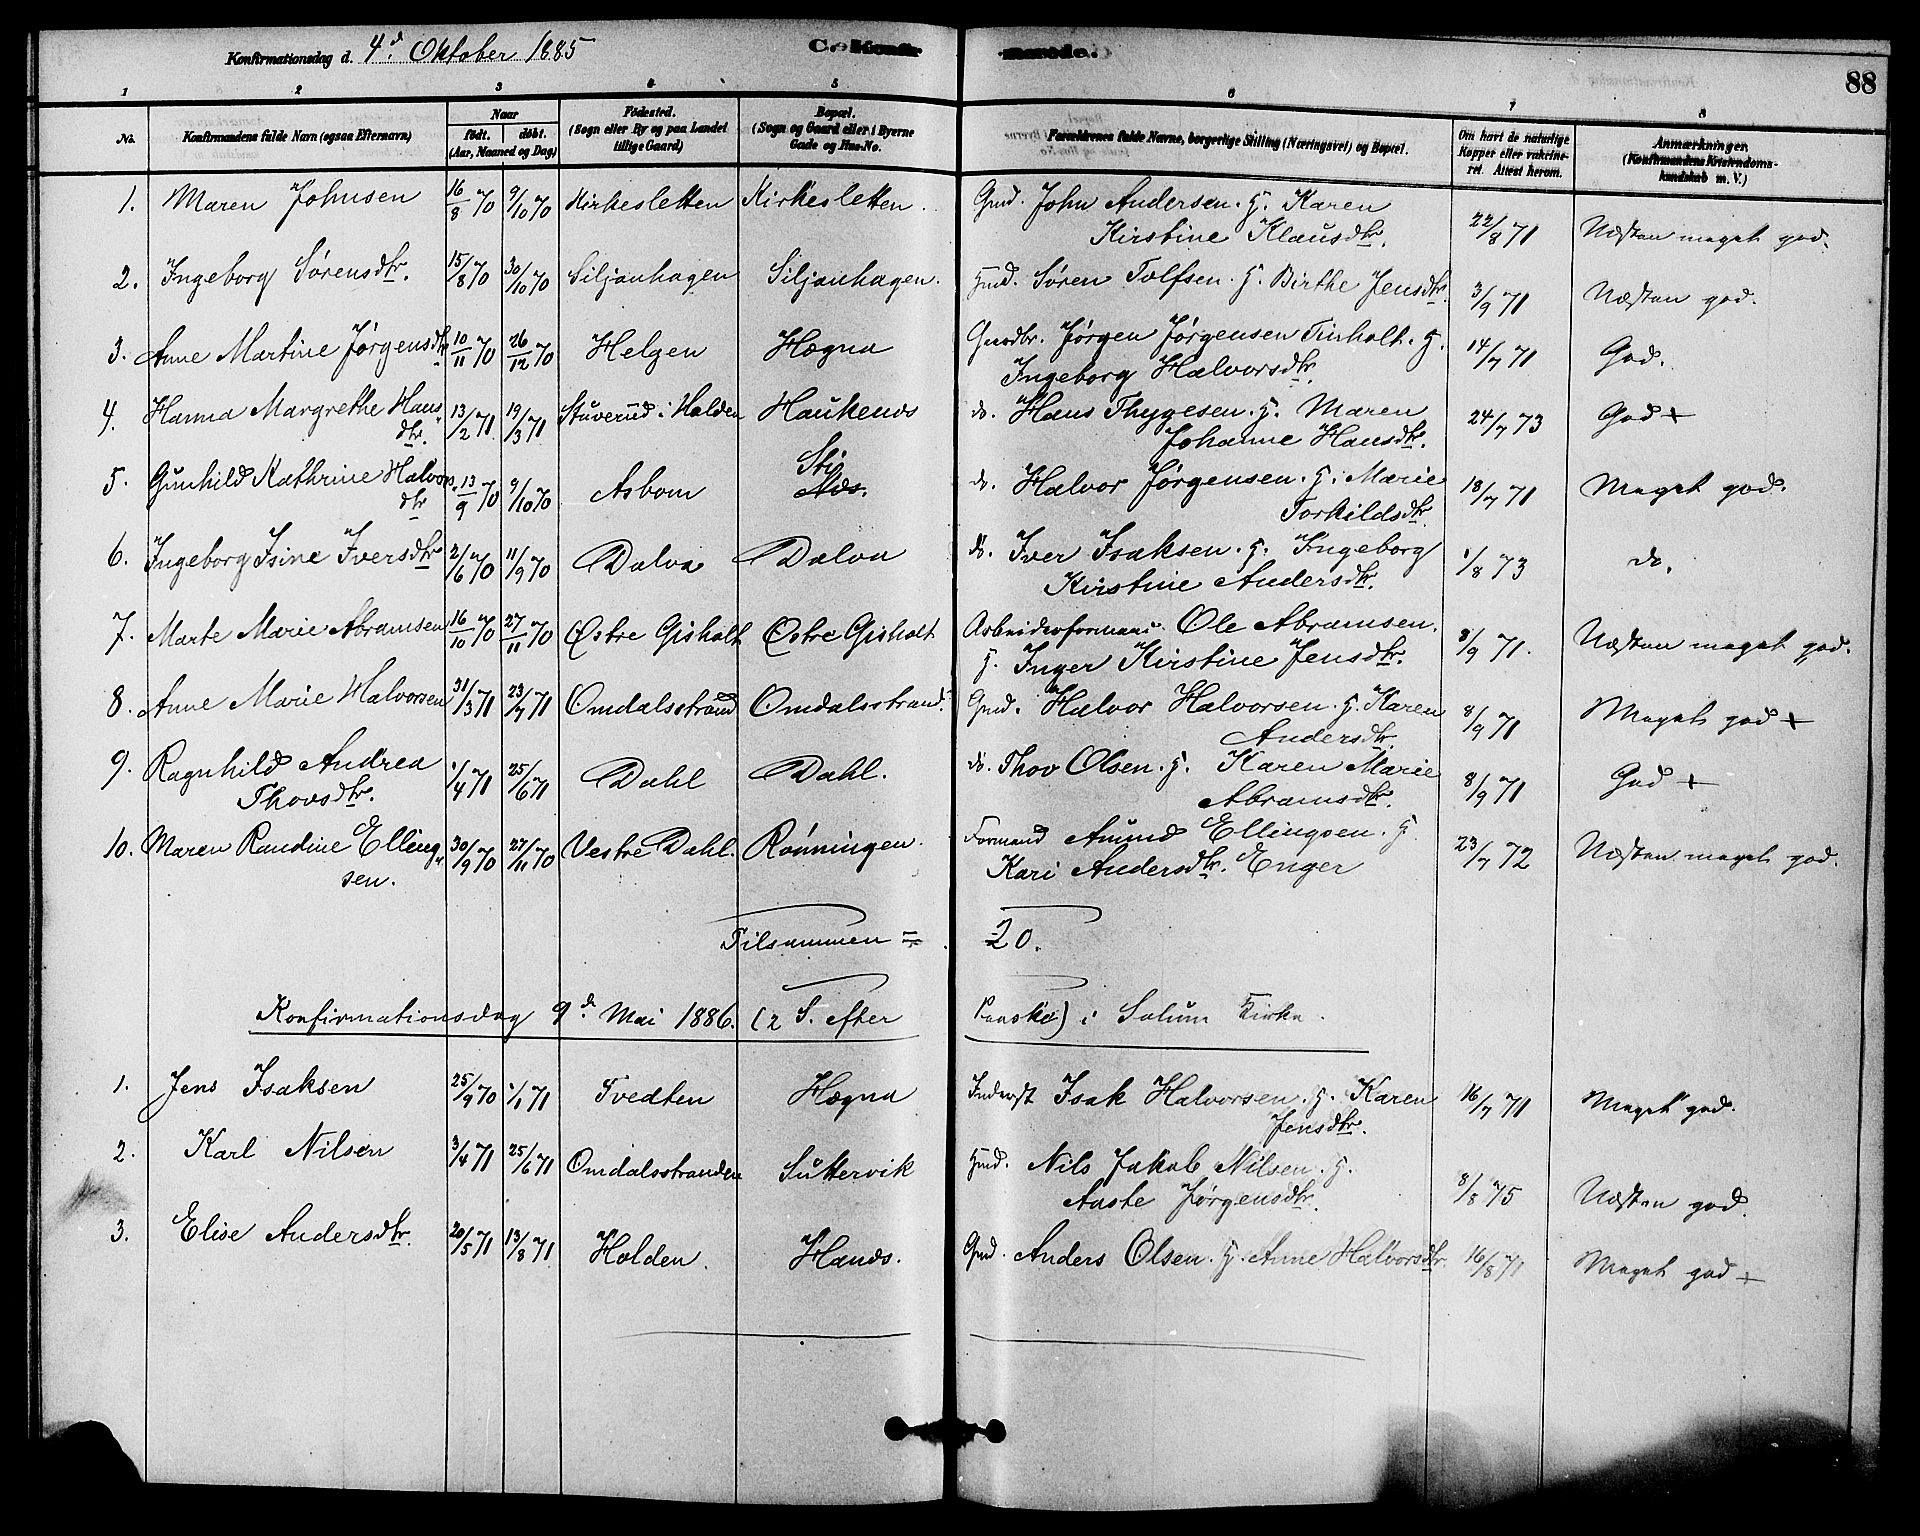 Konfirmationsdag d. 4d Oktober 1885
C. Konfirmerede.
88
1 2 3 4 5 6 7 8
No. Konfirmandens fulde Navn (ogsaa Efternavn) Naar født. døbt. (Aar, Maaned og Dag) Fødested. (Sogn eller By og paa Landet tillige Gaard) Bopæl. (Sogn og Gaard eller i Byerne Gade og Hus-No. Forældrenes fulde Navne, borgerlige Stilling (Næringsvei) og Bopæl. Om havt de naturlige Kopper eller vakcineret. Attest herom. Anmærkninger. (Konfirmandens Kristendomskundskab m. V.)
1. Maren Johnsen 16/8 70 9/10 70 Kirkesletten Kirkesletten. Gmd. John Andersen. H. Karen
Kirstine Klausdtr. 22/8 71 Næsten meget god.
2. Ingeborg Sørensdtr. 15/8 70 30/10 70 Siljanhagen Siljanhagen. Hmd. Søren Tolfsen. H. Birthe Jensdtr. 3/9 71 Næsten god.
3. Anne Martine Jørgensdtr. 10/11 70 26/12 70 Helgen Hægna Gaardbr. Jørgen Jørgensen Tinholt. H.
Ingeborg Halvorsdtr. 14/7 71 God.
4. Hanna Margrethe Hans 13/2 71 19/3 71 Stuverud i Holden Haukenæs do. Hans Thygesen. H. Maren
dtr. Johanne Hansdtr. 24/7 73 God +
5. Gunhild Kathrine Halvors 13/9 70 9/10 70 Asbom Sti
Næs. do. Halvor Jørgensen. H. Marie
dtr Torkildsdtr. 18/7 71 Meget god.
6. Ingeborg Isine Iversdtr 2/6 70 11/9 70 Dalva Dalva do. Iver Isaksen. H. Ingeborg
Kirstine Andersdtr. 1/8 73 do.
7. Marte Marie Abramsen 16/10 70 27/11 70 Østre Gisholt Østre Gisholt Arbeiderformand. Ole Abramsen.
H. Inger Kirstine Jensdtr. 8/9 71. Næsten meget god.
8. Anne Marie Halvorsen 31/3 71 23/7 71 Omdalsstrand Omdalsstrand. Gmd. Halvor Halvorsen. H. Karen
Andersdtr. 8/9 71 Meget god +
9. Ragnhild Andrea 1/4 71 25/6 71 Dahl Dahl. do. Thov Olsen. H. Karen Marie
Thovsdtr. Abramsdtr. 8/9 71 God +
10. Maren Randine Elling 30/9 70 27/11 70 Vestre Dahl. Rønningen. Formand Amund Ellingsen. H.
sen. Kari Andersdtr. Enger 23/7 72 Næsten meget god.
Tilsammen = 20.
Konfirmationsdag 9d. Mai 1886. (2 S. efter Paaske) i Solum Kirke.
1. Jens Isaksen 25/9 70 1/1 71 Tvedten Hægna Inderst Isak Halvorsen. H. Karen
Jensdtr. 16/7 71 Meget god.
2. Karl Nilsen 3/4 71 25/6 71 Omdalsstranden Suttervik Hmd. Nils Jakob Nilsen. H.
Aaste Jørgensdtr. 8/8 75 Næsten god.
3. Elise Andersdtr. 20/5 71 13/8 71 Holden. Hanæs. Gmd. Anders Olsen. H. Anne Halvorsdtr. 16/8 71 Meget god +